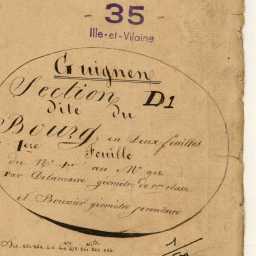 35
Ille-et-Vilaine
Guignen
Section D1
dite du
Bourg, en deux feuilles
1ère Feuille
du N° 1er au N°
par Delamaire, géomètre de 1ère classe
et géomètre